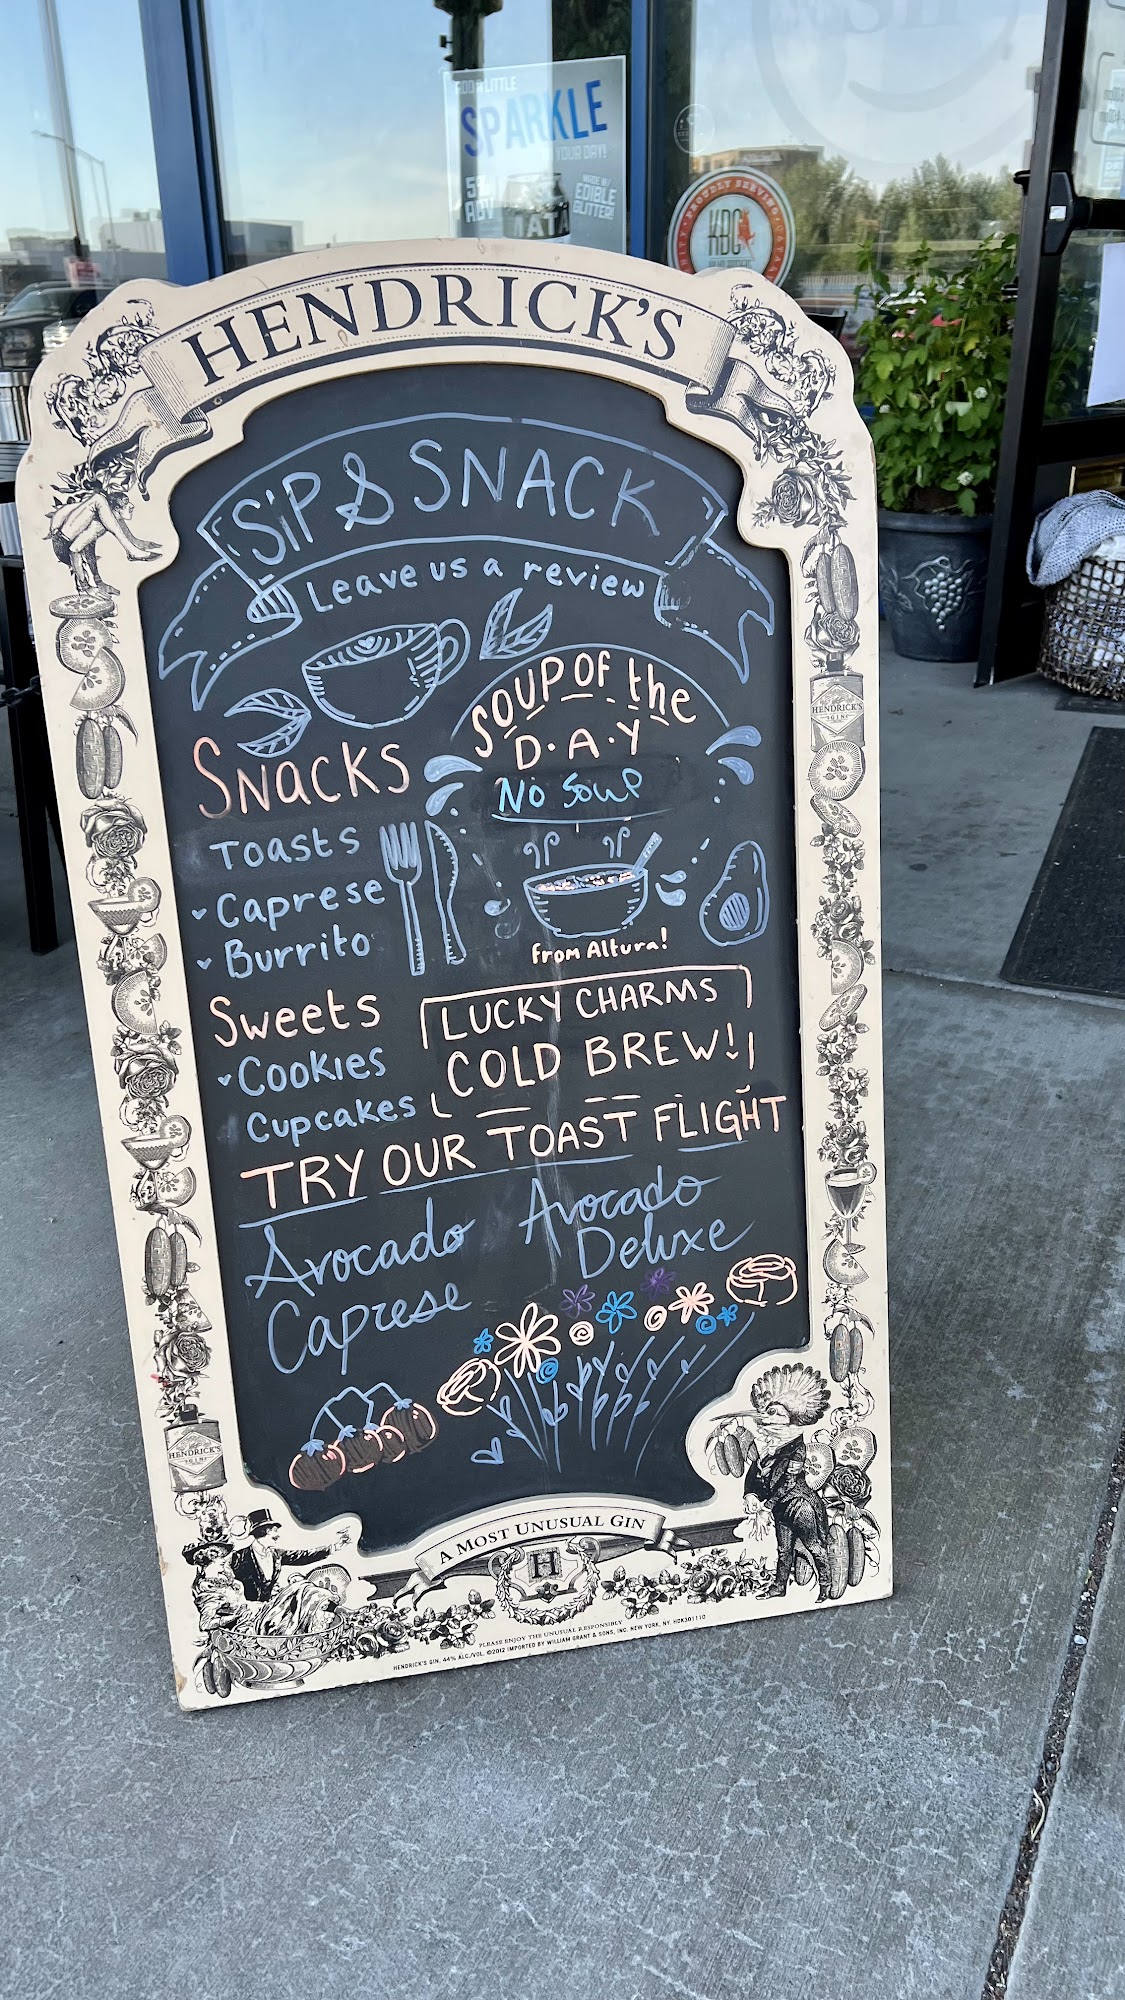 ADD A LITTLE
SPARKLE
YOUR DAY!
5%
ABV
MADE W/
EDIBLE
GLITTER!
PROUDLY SERVING
KBC
HENDRICK'S
SIP & SNACK
Leave us a review
SOUP OF the
D·A·Y
No Soup
from Altura!
SNACKS
TOASTS
Caprese
Burrito
Sweets
Cookies
Cupcakes
LUCKY CHARMS
COLD BREW!
TRY OUR TOAST FLIGHT
Avocado
Caprese
Avocado
Deluxe
HENDRICK'S
GIN
HENDRICK'S
GIN
A MOST UNUSUAL GIN
H
PLEASE ENJOY THE UNUSUAL RESPONSIBLY
HENDRICK'S GIN, 44% ALC./VOL. ©2012 IMPORTED BY WILLIAM GRANT & SONS, INC. NEW YORK, NY. HDK301110